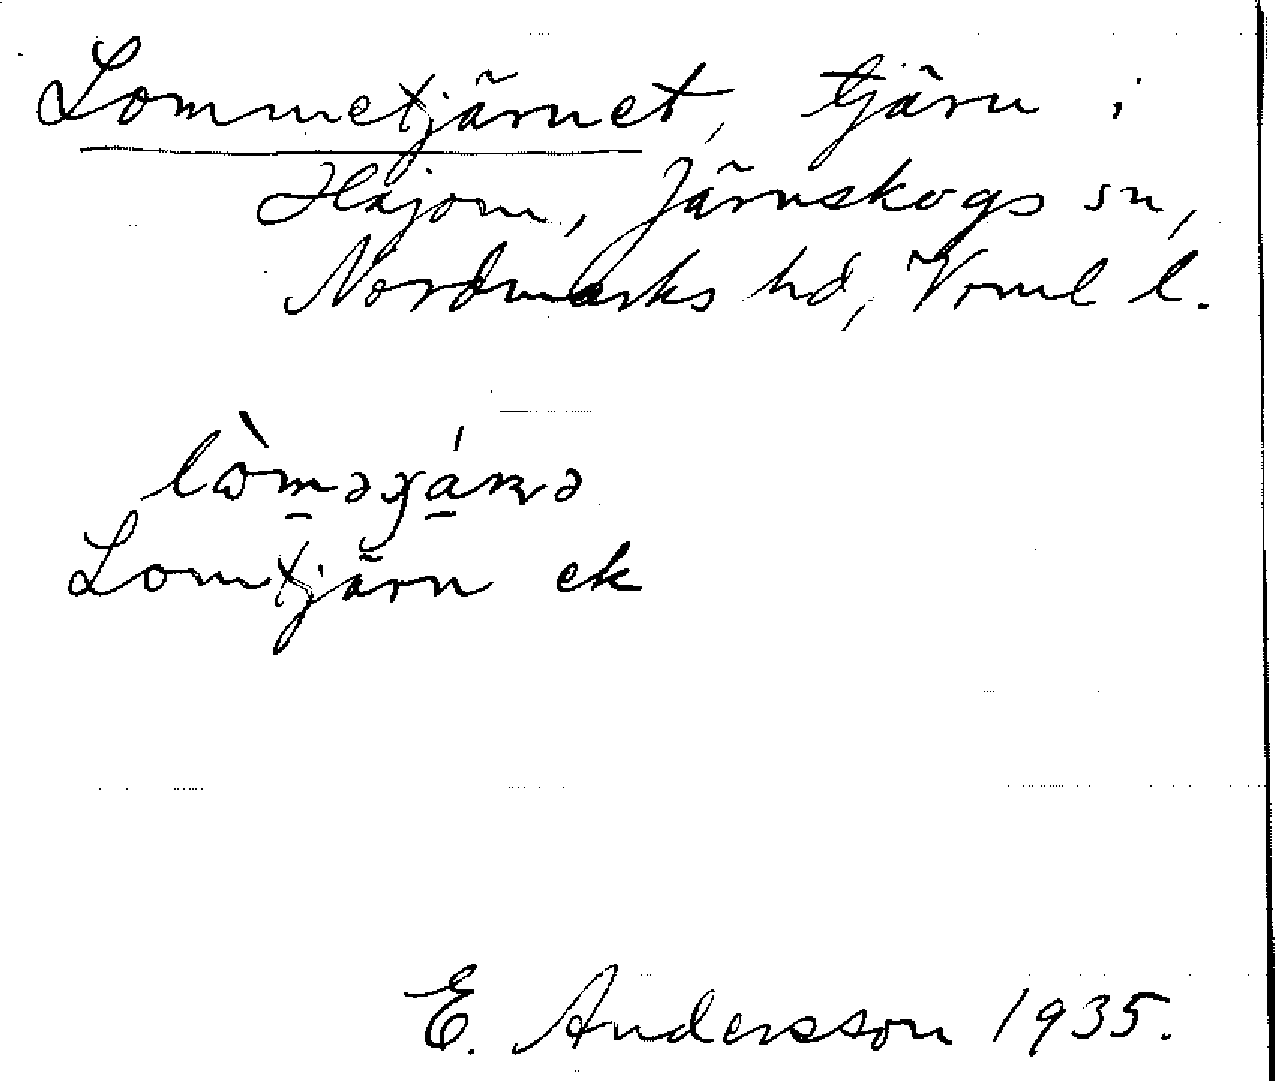 Lommetjärnet, tjärn i
Håjom, Järnskogs sn,
Nordmarks hd, Vrml l.
Lomtjärn ek
E. Andersson 1935.